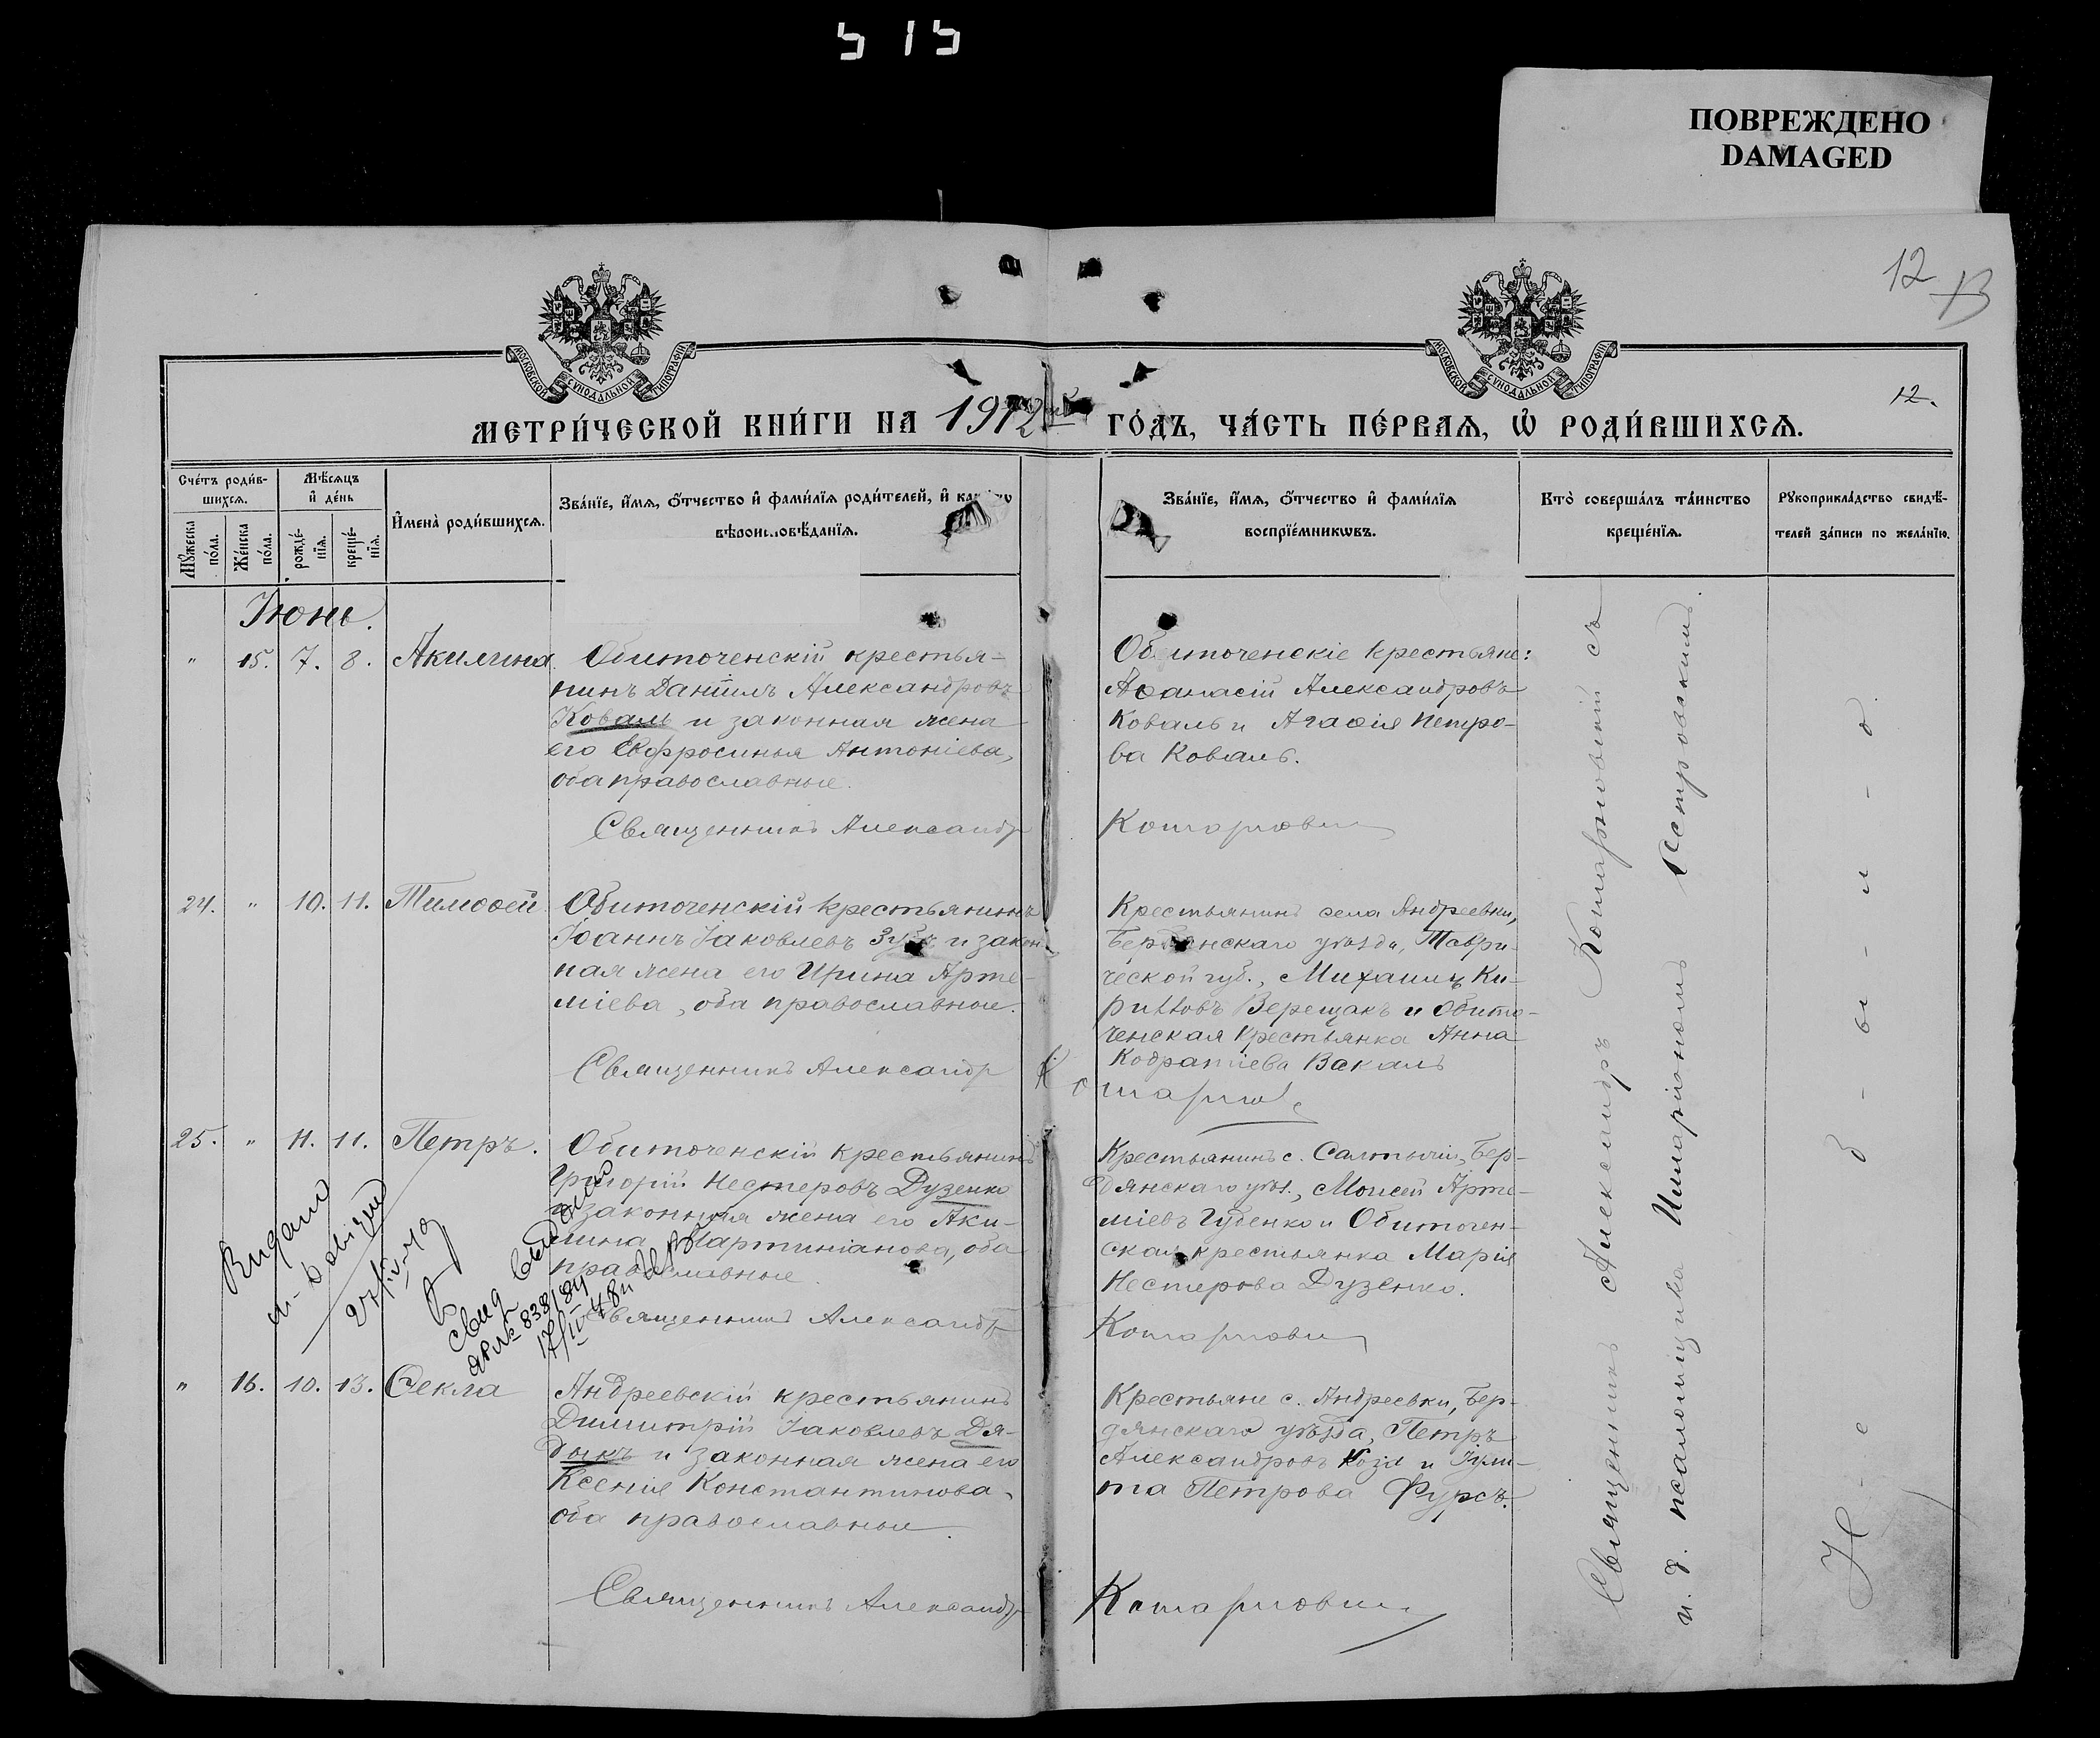 515
ПОВРЕЖДЕНО
DAMAGED
12 13
12.
МОСКОВСКОЙ СѴНОДАЛЬНОЙ ТИПОГРАФІИ
МОСКОВСКОЙ СѴНОДАЛЬНОЙ ТИПОГРАФІИ
МЕТРИ́ЧЕСКОЙ КНИ́ГИ НА 1912 ГО́ДЪ, ЧА́СТЬ ПЕ́РВАѦ, Ѡ҆ РОДИ́ВШИХСѦ.
Сче́тъ роди́вшихсѧ.
Мꙋ́жеска по́ла.
Же́нска по́ла.
Мѣ́сѧцъ и҆ де́нь
рожде́нїѧ.
креще́нїѧ.
И҆мена̀ роди́вшихсѧ.
Зва́нїе, и҆́мѧ, ѻ҆́тчество и҆ фами́лїѧ роди́телей, и҆
вѣроисповѣ́данїѧ.
Зва́нїе, и҆́мѧ, ѻ҆́тчество и҆ фами́лїѧ
воспрїе́мникѡвъ.
Кто̀ соверша́лъ та́инство
креще́нїѧ.
Рꙋкоприкла́дство свидѣ́-
телей за́писи по жела́нїю.
Іюнь.
" 15. 7. 8. Акилина.
Обиточенскій крестья-
нинъ Даніилъ Александровъ
Коваль и законная жена
его Евфросинья Антоніева,
оба православные.
Священникъ Александр
Обиточенскіе крестьяне:
Аѳанасій Александровъ
Коваль и Агаѳія Петро-
ва Коваль.
Котарловичъ
24. " 10. 11. Тимоѳей
Обиточенскій крестьянинъ
Іоаннъ Іаковлевъ и закон-
ная жена его Ирина Арте-
міева, оба православные.
Священникъ Александр
Крестьянинъ села Андреевки,
Бердянскаго уѣзда, Таври-
ческой губ., Михаилъ Ки-
рилловъ Верещакъ и Обито-
ченская крестьянка Анна
Кодратіева Вакаль
25. " 11. 11. Петръ.
Обиточенскій крестьянинъ
Григорій Нестеровъ Дузенко
и законная жена его Аки-
лина Мартиніанова, оба
православные.
Священникъ Александр
Крестьянинъ с. Салтычіи, Бер-
дянскаго уѣз., Моисей Арте-
міевъ Губенко и Обиточен-
ская крестьянка Марія
Нестерова Дузенко.
Видано
27/IV-49
свид
АР № 838184
17/IV 48
" 16. 10. 13. Ѳекла
Андреевскій крестьянинъ
Димитрій Іаковлевъ Дя-
дыкъ и законная жена его
Ксенія Константинова,
оба православные.
Священникъ Александр
Крестьяне с. Андреевки, Бер-
дянскаго уѣзда, Петръ
Александровъ Коза и Іули-
та Петрова Фурсъ.
Священникъ Александръ съ
и. д. псаломщика Иларіономъ Пестровскимъ.
Н - е б - ы - л - о.